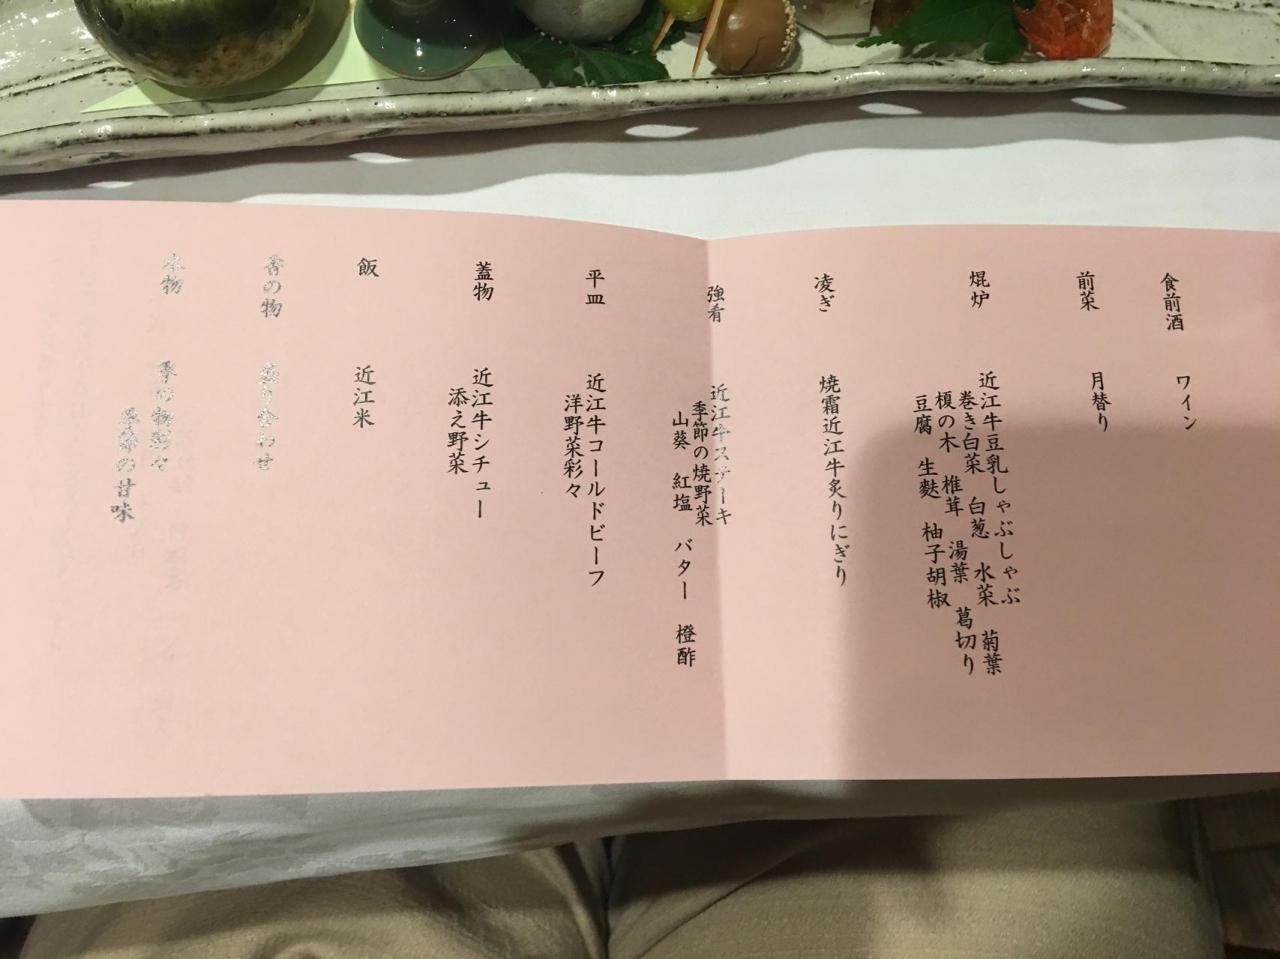 食前酒　ワイン
前菜　月替り
焜炉　近江牛豆乳しゃぶしゃぶ
巻き白菜　白葱　水菜　菊葉
榎の木　椎茸　湯葉　葛切り
豆腐　生麩　柚子胡椒
凌ぎ　焼霜近江牛炙りにぎり
強肴　近江牛ステーキ
季節の焼野菜
山葵　紅塩　バター　橙酢
平皿　近江牛コールドビーフ
洋野菜彩々
蓋物　近江牛シチュー
添え野菜
飯　近江米
香の物　盛り合わせ
水物　季の物彩々
季節の甘味